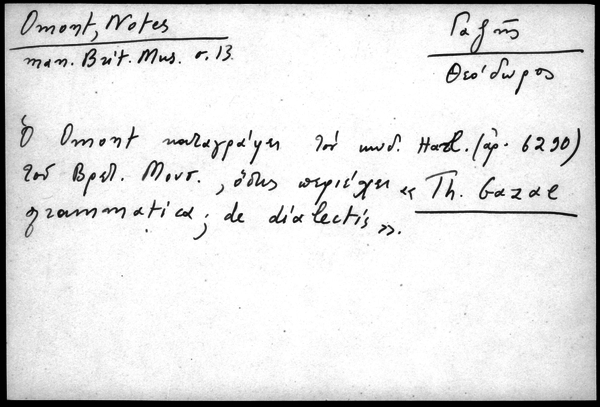 Omont, Notes
man. Brit. Mus. σ. 13.
Γαζῆς
Θεόδωρος
Ὁ Omont καταγράφει τὸν κωδ. Harl. (ἀρ. 6290)
τοῦ Βρετ. Μουσ., ὅστις περιέχει « Th. Gazae
grammatica; de dialectis ».